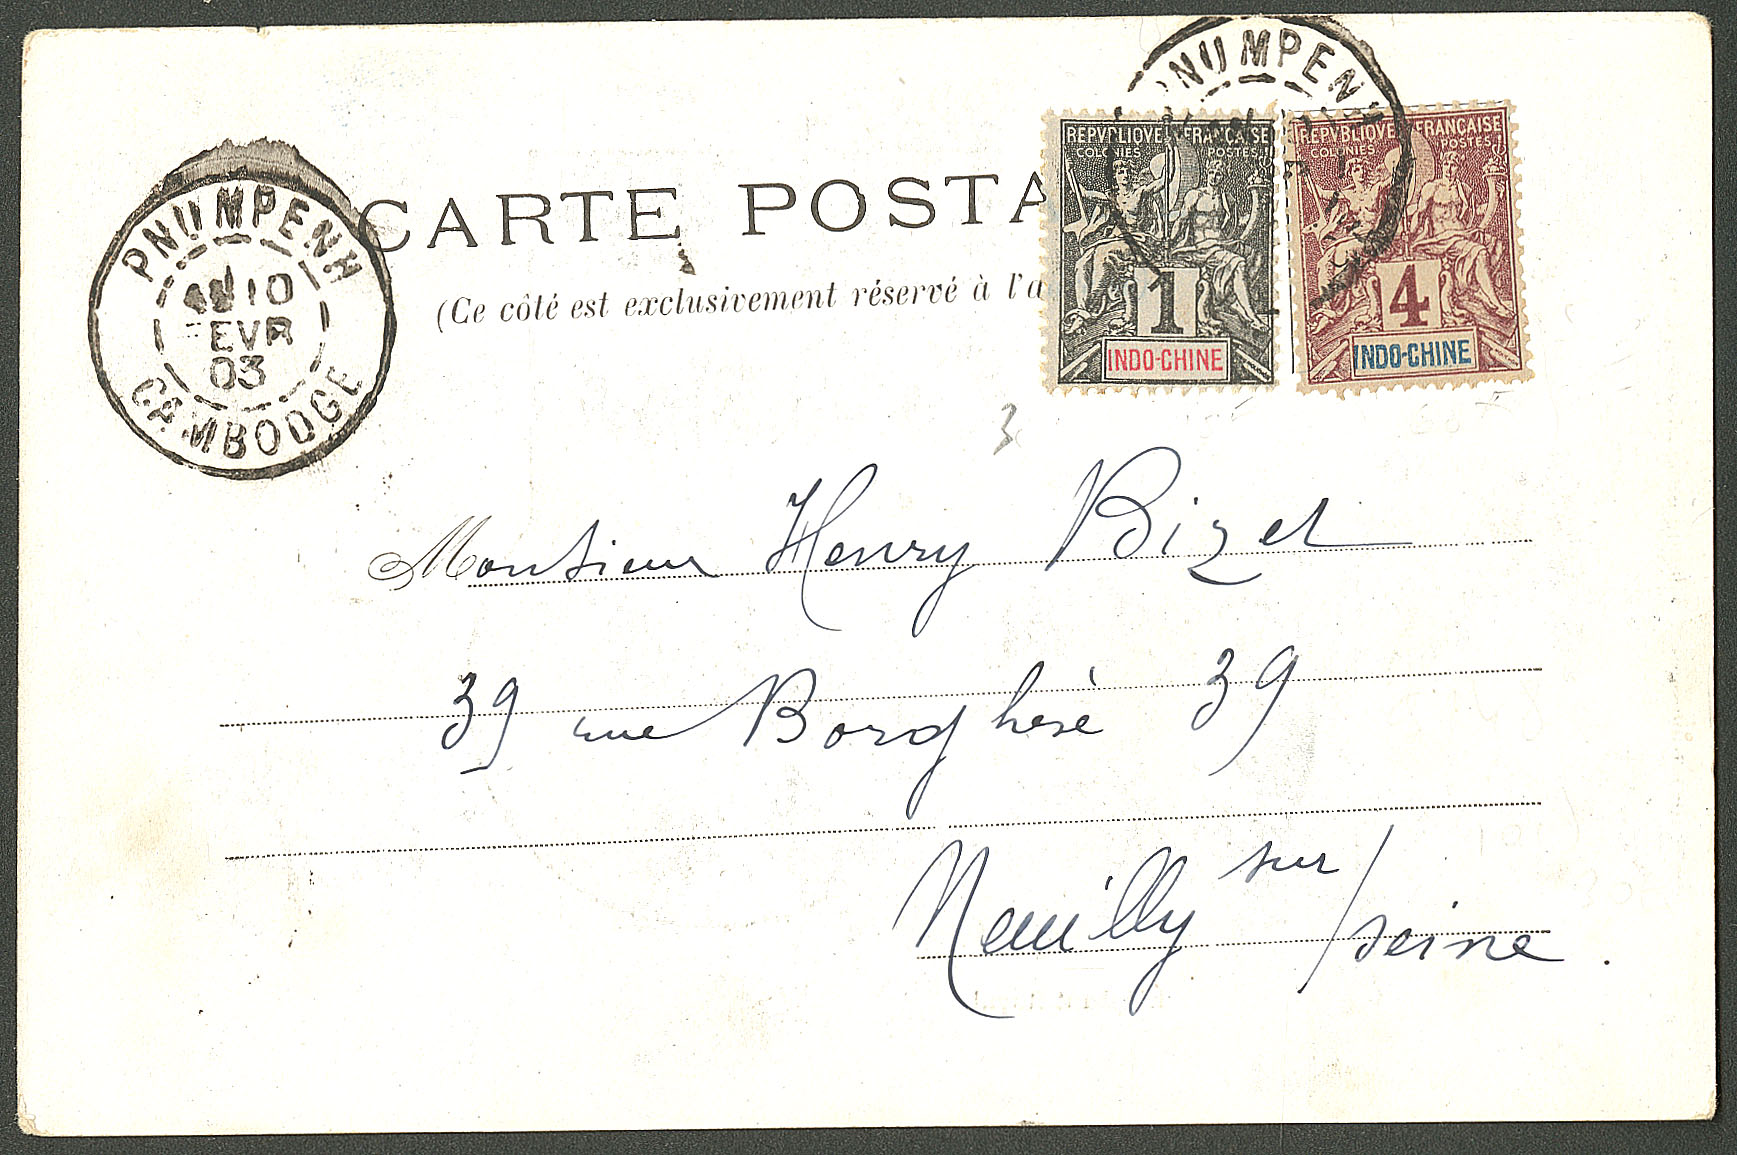 PNUMPENH
10
FEVR
03
CAMBODGE
CARTE POSTA
(Ce côté est exclusivement réservé à l'a
PNUMPENH
REPVBLIQVE FRANÇAISE
COLONIES POSTES
1
INDO-CHINE
REPVBLIQVE FRANÇAISE
COLONIES POSTES
4
INDO-CHINE
3
Monsieur Henry Bizet
39 rue Borghèse 39
Neuilly sur/seine.